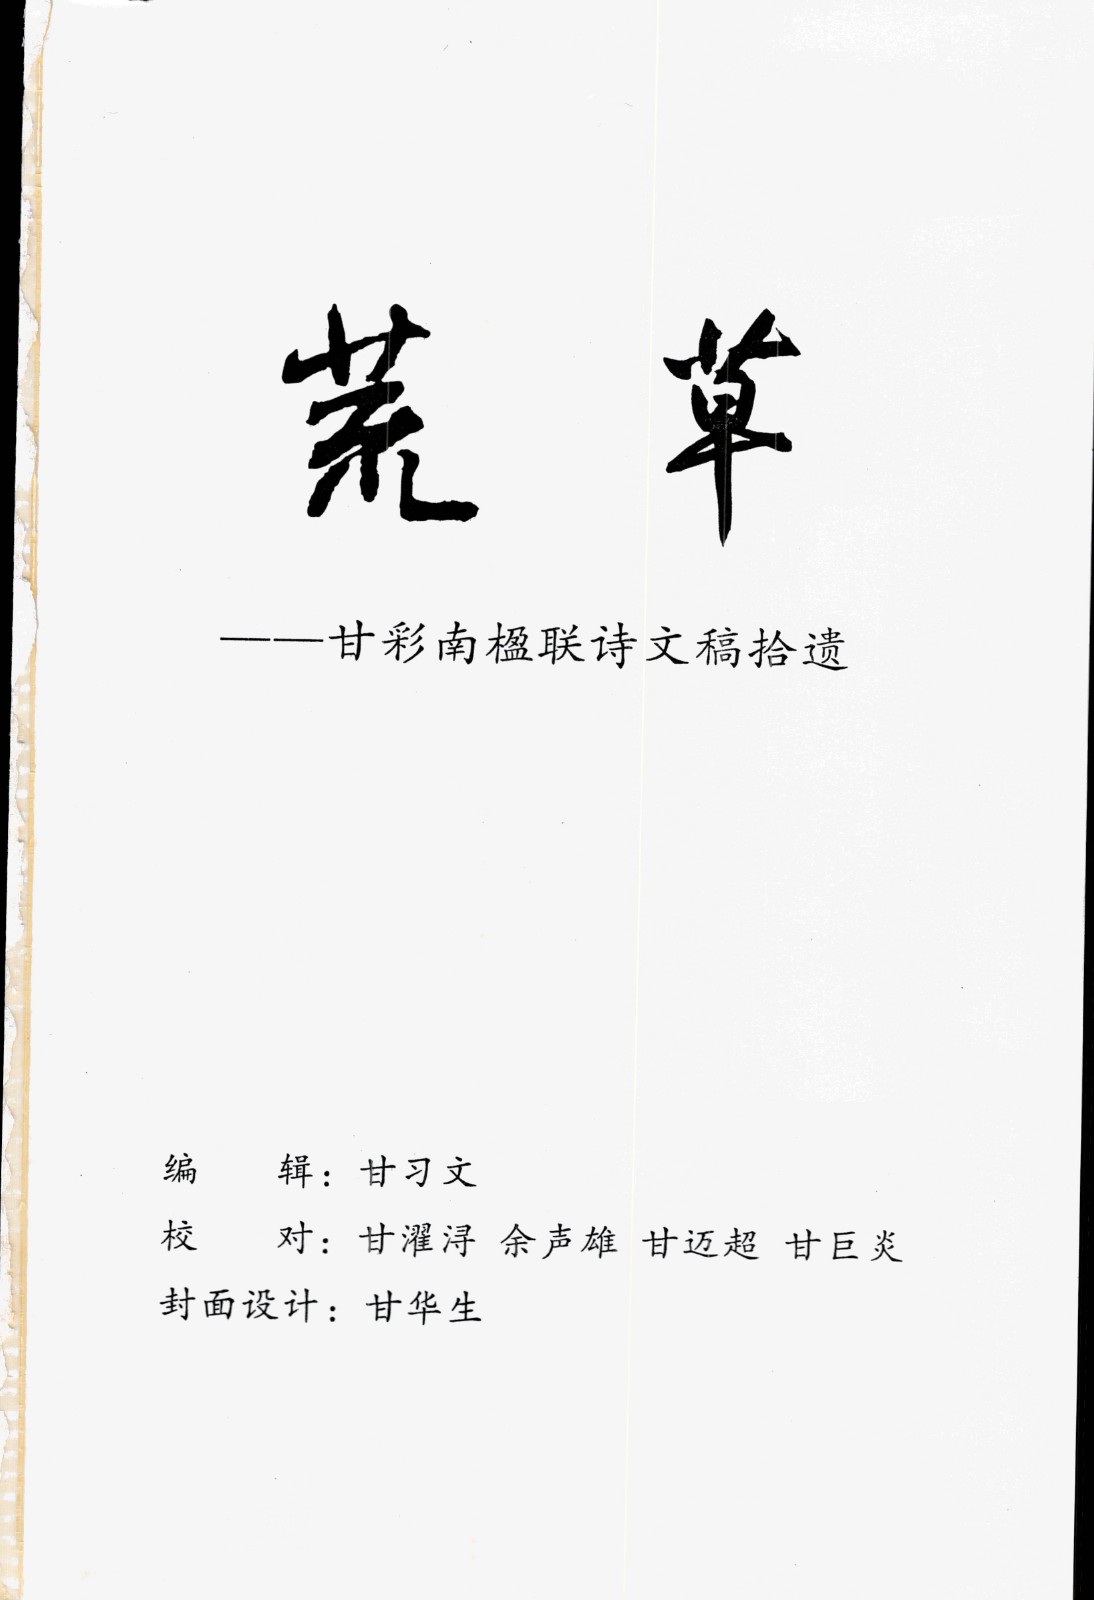 荒草
——甘彩南楹联诗文稿拾遗
编　　辑：甘习文
校　　对：甘濯浔 余声雄 甘迈超 甘巨炎
封面设计：甘华生